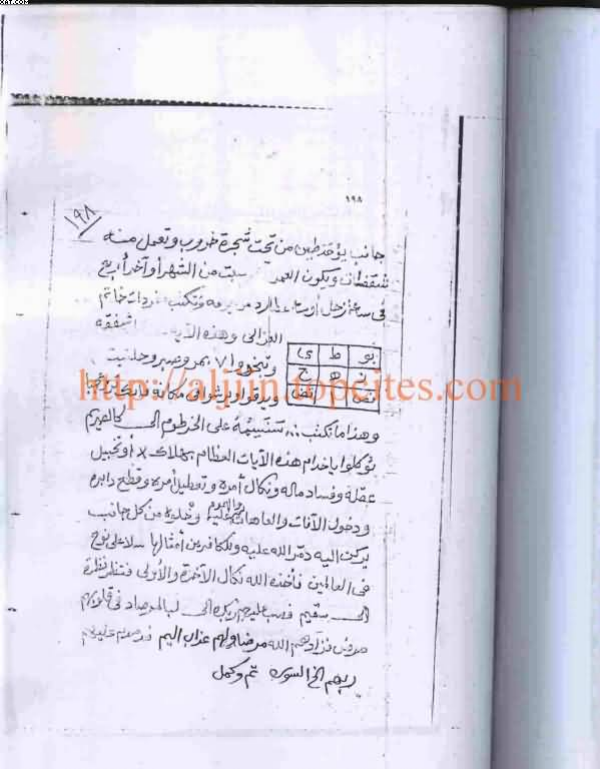 ١٩٨
١٩٨
جانب يؤخذ طين من تحت شجرة خروب وتعمل منه
شقفتان ويكون العمل سبت من الشهر أو آخر أربع
في ساعة زحل أو ساعة المريخ وتكتب خاتم
الغزالي وهذه الآية الشقفة
بو ط ى
ز ه ج
وتبخره بمر وصبر وحلتيت
http://aljjin.topcites.com
وهذا ما تكتب سنسمه على الخرطوم الى كالصريم
توكلوا ياخدام هذه الآيات العظام بهلاك × أو تخبيل
عقله وفساد ماله ونكال أمره وتعطيل أموره وقطع دابره
ودخول الآفات والعاهات عليه وخذوه من كل جانب
دمر الله عليه وللكافرين أمثالها سلام على نوح
في العالمين فأخذه الله نكال الآخرة والأولى فنظر نظرة
الى سقيم فصب عليهم ربك الى لبالمرصاد في قلوبهم
مرض فزادهم الله مرضا ولهم عذاب اليم فدمدم عليهم
ربهم الخ السورة تم وكمل